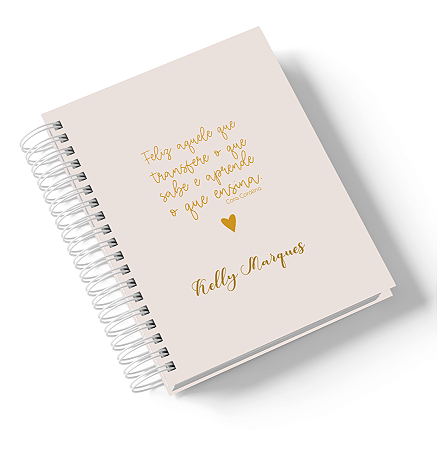 Feliz aquele que
transfere o que
sabe e aprende
o que ensina.
Cora Coralina
Kelly Marques